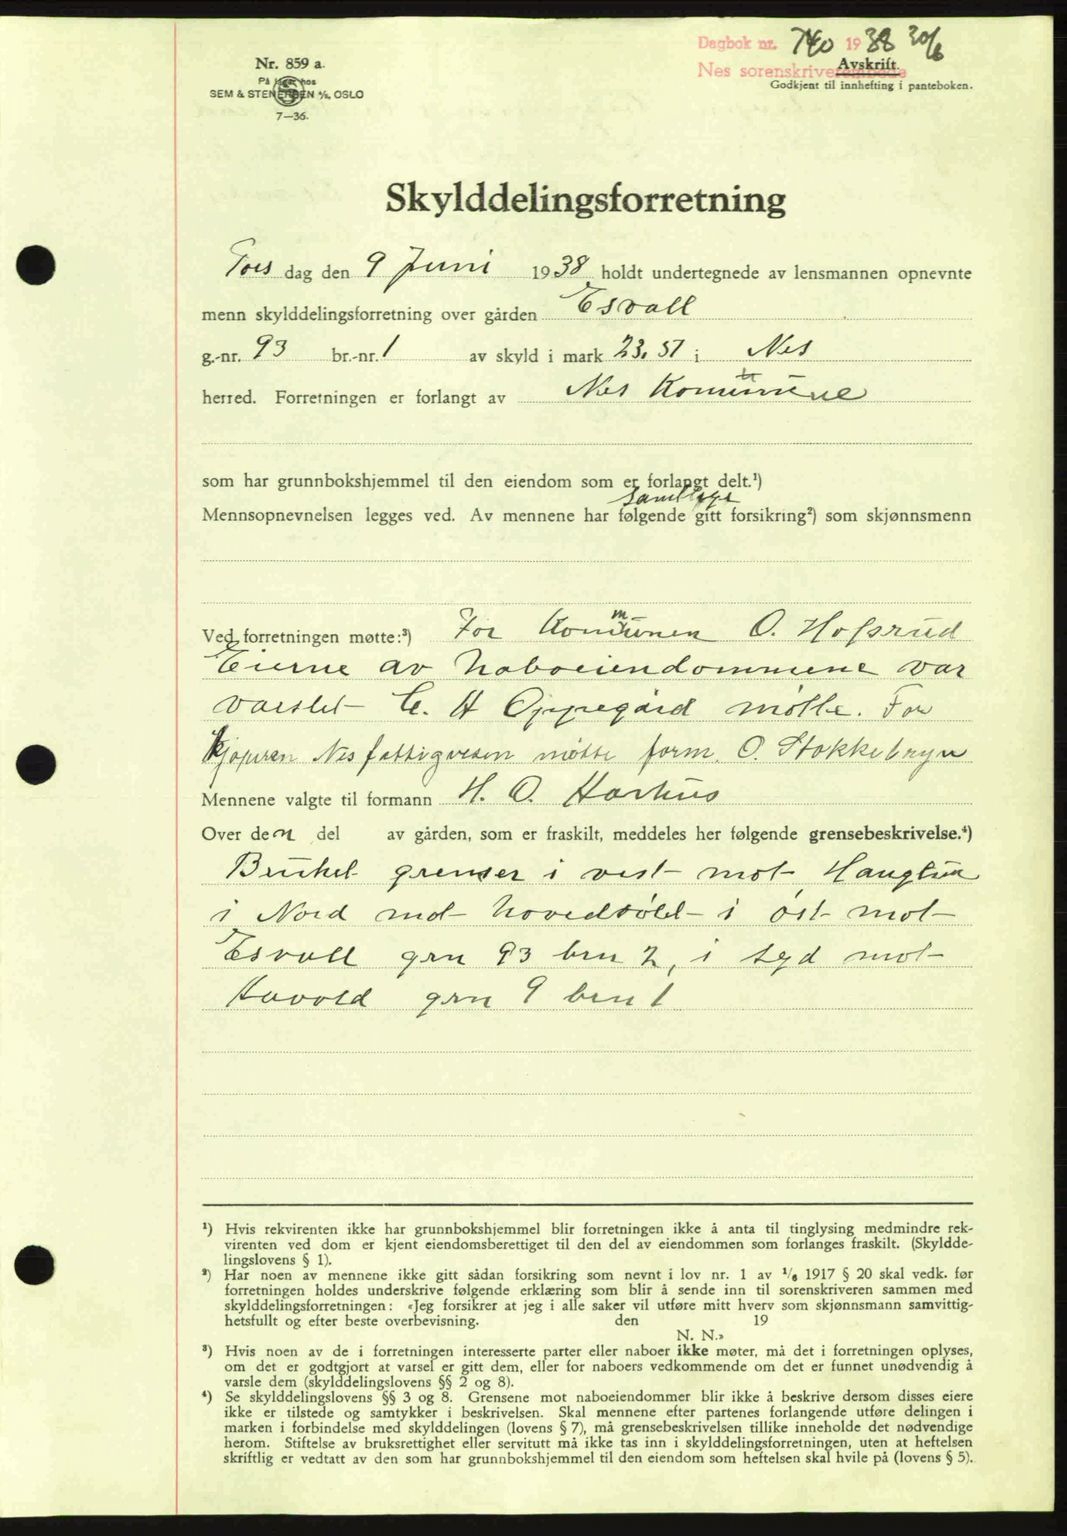 Dagbok nr. 740 1938 30/6
Nes sorenskriverembede
Avskrift.
Godkjent til innhefting i panteboken.
Nr. 859 a.
På lager hos
SEM & STENERSEN A/S, OSLO
7—36.
Skylddelingsforretning
Tors dag den 9 Juni 1938 holdt undertegnede av lensmannen opnevnte
menn skylddelingsforretning over gården Esvall
g.-nr. 93 br.-nr. 1 av skyld i mark 23.51 i Nes
herred. Forretningen er forlangt av Nes Kommune
som har grunnbokshjemmel til den eiendom som er forlangt delt.¹)
samtlige
Mennsopnevnelsen legges ved. Av mennene har følgende gitt forsikring²) som skjønnsmenn
Ved forretningen møtte:³) For Kommunen O. Hofsrud
Eierne av naboeiendommene var
varslet H. Oppegård møtte. For
kjøperen Nes fattigvesen møtte form. O. Stokkebryn
Mennene valgte til formann H. O. Harhus
Over den del av gården, som er fraskilt, meddeles her følgende grensebeskrivelse.⁴)
Bruket grenser i vest mot Haugtun
i Nord mot hovedbølet i øst mot
Esvall grn 93 brn 2, i syd mot
Havold grn 9 brn 1
¹) Hvis rekvirenten ikke har grunnbokshjemmel blir forretningen ikke å anta til tinglysing medmindre rek-
virenten ved dom er kjent eiendomsberettiget til den del av eiendommen som forlanges fraskilt. (Skyldde-
lingslovens § 1).
²) Har noen av mennene ikke gitt sådan forsikring som nevnt i lov nr. 1 av 1/6 1917 § 20 skal vedk. før
forretningen holdes underskrive følgende erklæring som blir å sende inn til sorenskriveren sammen med
skylddelingsforretningen: «Jeg forsikrer at jeg i alle saker vil utføre mitt hverv som skjønnsmann samvittig-
hetsfullt og efter beste overbevisning. den 19
N. N.»
³) Hvis noen av de i forretningen interesserte parter eller naboer ikke møter, må det i forretningen oplyses,
om det er godtgjort at varsel er gitt dem, eller for naboers vedkommende om det er funnet unødvendig å
varsle dem (skylddelingslovens §§ 2 og 8).
⁴) Se skylddelingslovens §§ 3 og 8. Grensene mot naboeiendommer blir ikke å beskrive dersom disses eiere
ikke er tilstede og samtykker i beskrivelsen. Skal mennene efter partenes forlangende utføre delingen i
marken i forbindelse med skylddelingen (lovens § 7), må grensebeskrivelsen tillike inneholde det nødvendige
herom. Stiftelse av bruksrettighet eller servitutt må ikke tas inn i skylddelingsforretningen, uten at heftelsen
skriftlig er vedtatt av den som har grunnbokshjemmel til den eiendom som heftelsen skal hvile på (lovens § 5).